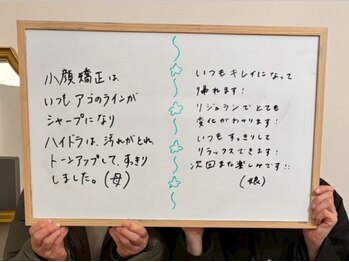 小顔矯正は
いつもアゴのラインが
シャープになり
ハイドラは、汚れがとれ、
トーンアップして、すっきり
しました。(母)
いつもキレイになって
帰れます!
リジュランでとても
変化がわかります!
いつもすっきりして
リラックスできます!
次回また楽しみです!!
(娘)